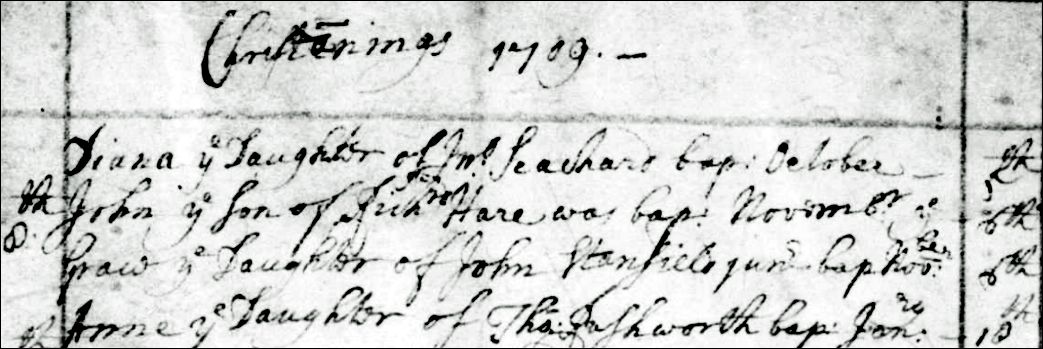 Christenings 1709. —
Diana yᵉ Daughter of Jnᵒ bap: October — th
th John yᵉ Son of Richʳᵈ Hare was bap: Novembʳ yᵉ 6th
8. Grace yᵉ Daughter of John Stanfield junʳ bap Novᵇᵉʳ: 6th
Anne yᵉ Daughter of Thoˢ: Rushworth bap: Janʳʸ: — 10th